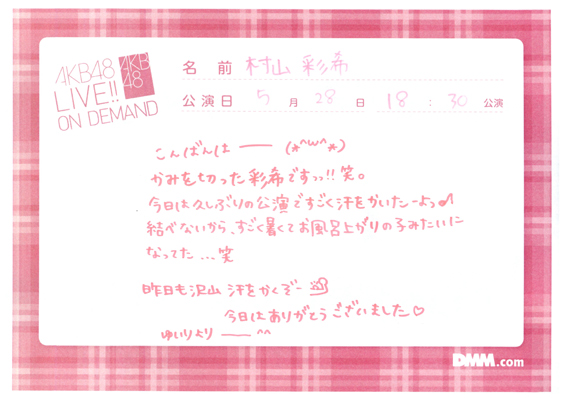 AKB48
LIVE!!
ON DEMAND
AKB
48
名 前 村山 彩希
公演日 5 月 28 日 18 : 30 公演
こんばんは ── (*^ω^*)
かみを切った彩希ですっっ!!笑。
今日は久しぶりの公演ですごく汗をかいたーよっ♪
結べないから、すごく暑くてお風呂上がりの子みたいに
なってた...笑
昨日も沢山汗をかくぞー
今日はありがとうございました♡
ゆいりより ── ^^
DMM.com